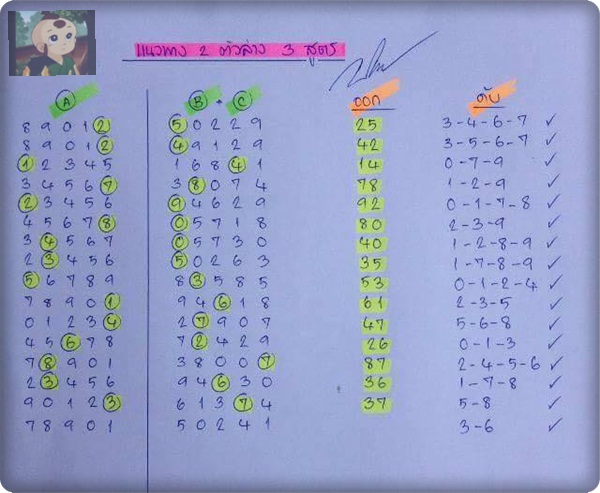 แนวทาง 2 ตัวล่าง 3 สูตร
A B + C ออก ดับ
8 9 0 1 2 5 0 2 2 9 25 3-4-6-7 ✓
8 9 0 1 2 4 9 1 2 9 42 3-5-6-7 ✓
1 2 3 4 5 1 6 8 4 1 14 0-7-9 ✓
3 4 5 6 7 3 8 0 7 4 78 1-2-9 ✓
2 3 4 5 6 9 4 6 2 9 92 0-1-7-8 ✓
4 5 6 7 8 0 5 7 1 8 80 2-3-9 ✓
3 4 5 6 7 0 5 7 3 0 40 1-2-8-9 ✓
2 3 4 5 6 5 0 2 6 3 35 1-7-8-9 ✓
5 6 7 8 9 8 3 5 8 5 53 0-1-2-4 ✓
7 8 9 0 1 9 4 6 1 8 61 2-3-5 ✓
0 1 2 3 4 2 7 9 0 7 47 5-6-8 ✓
4 5 6 7 8 7 2 4 2 9 26 0-1-3 ✓
7 8 9 0 1 3 8 0 0 7 87 2-4-5-6 ✓
2 3 4 5 6 9 4 6 3 0 36 1-7-8 ✓
9 0 1 2 3 6 1 3 7 4 37 5-8 ✓
7 8 9 0 1 5 0 2 4 1 3-6 ✓